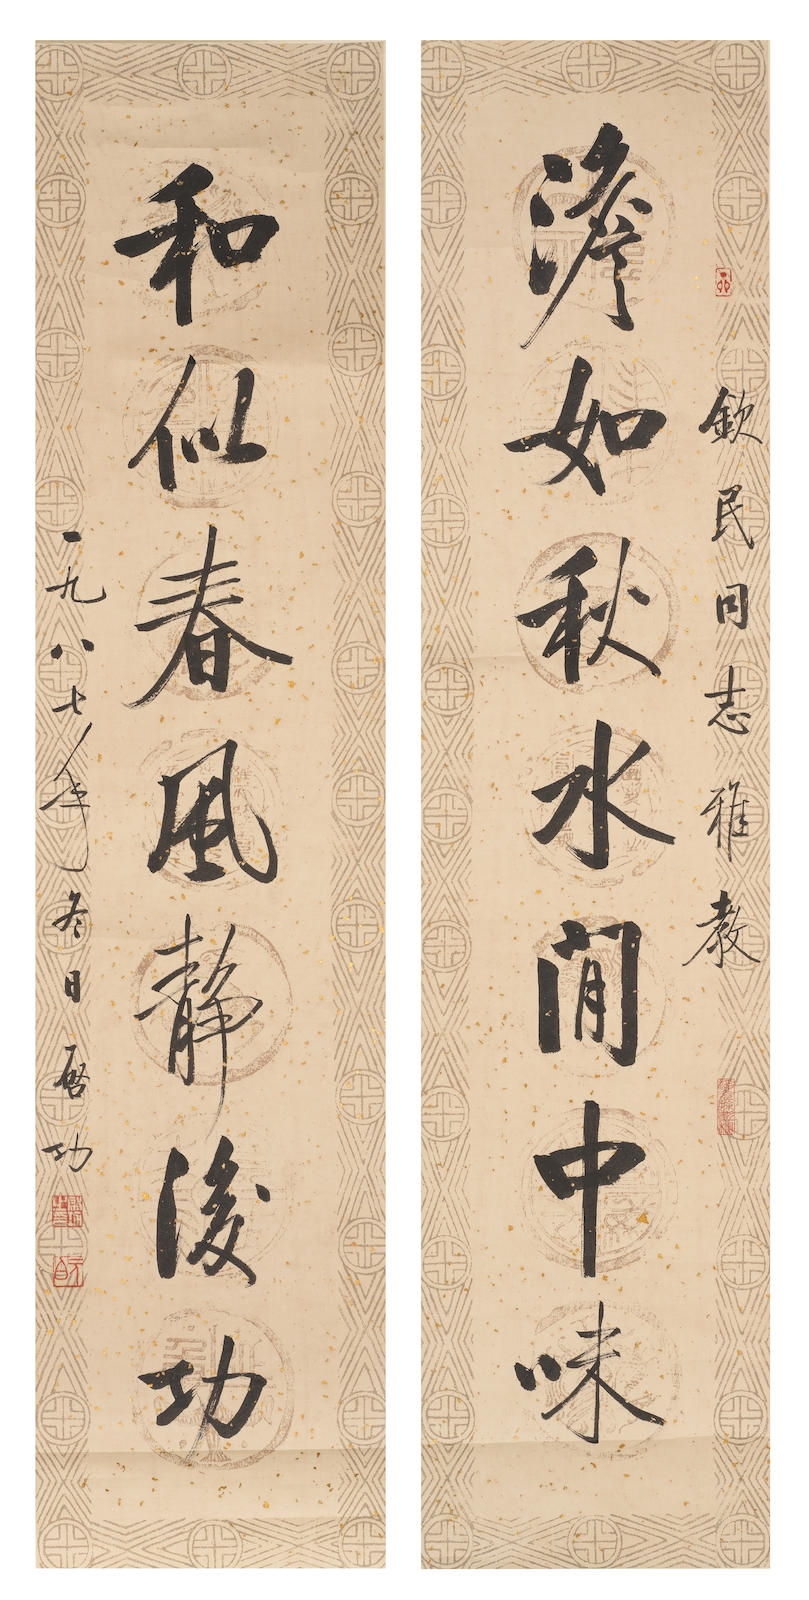 欽民同志雅教
澹如秋水閒中味
和似春風静後功
一九八七年冬日啓功